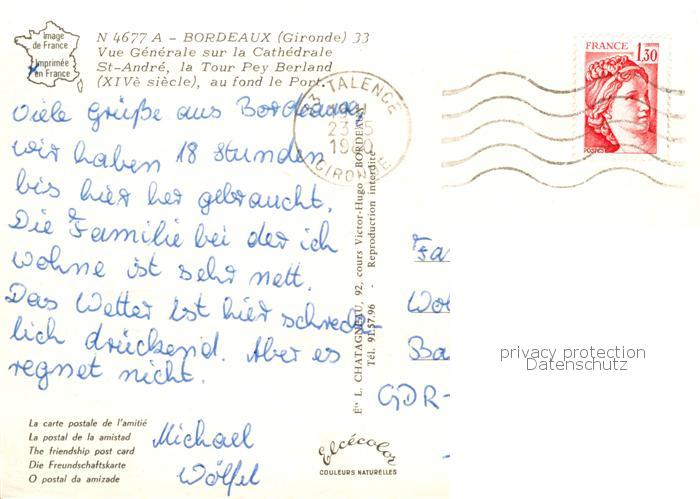 Image
de France
Imprimée
en France
N 4677 A – BORDEAUX (Gironde) 33
Vue Générale sur la Cathédrale
St-André, la Tour Pey Berland
(XIVè siècle), au fond le Port.
FRANCE
1,30
POSTES
33 TALENCE
23-5
1980
GIRONDE
Viele Grüße aus Bordeaux
wir haben 18 stunden
bis hier her gebraucht.
Die Familie bei der ich
wohne ist sehr nett.
Das Wetter ist hier schreck-
lich drückend. Aber es
regnet nicht.
Michael
Wölfel
Éts L. CHATAGNEAU, 92, cours Victor-Hugo - BORDEAUX
Tél. 91.57.96 - Reproduction interdite
Fa
Wol
Ba
GDR-
privacy protection
Datenschutz
La carte postale de l'amitié
La postal de la amistad
The friendship post card
Die Freundschaftskarte
O postal da amizade
Elcécolor
COULEURS NATURELLES